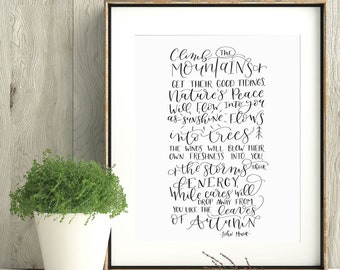 Climb The
Mountains &
GET THEIR GOOD TIDINGS.
Nature's Peace
Will Flow Into You
as sunshine Flows
into trees
THE WINDS WILL BLOW THEIR
OWN FRESHNESS INTO YOU
& the storms their
ENERGY,
While cares will
DROP AWAY FROM
YOU LIKE THE leaves
OF Autumn
- John Muir